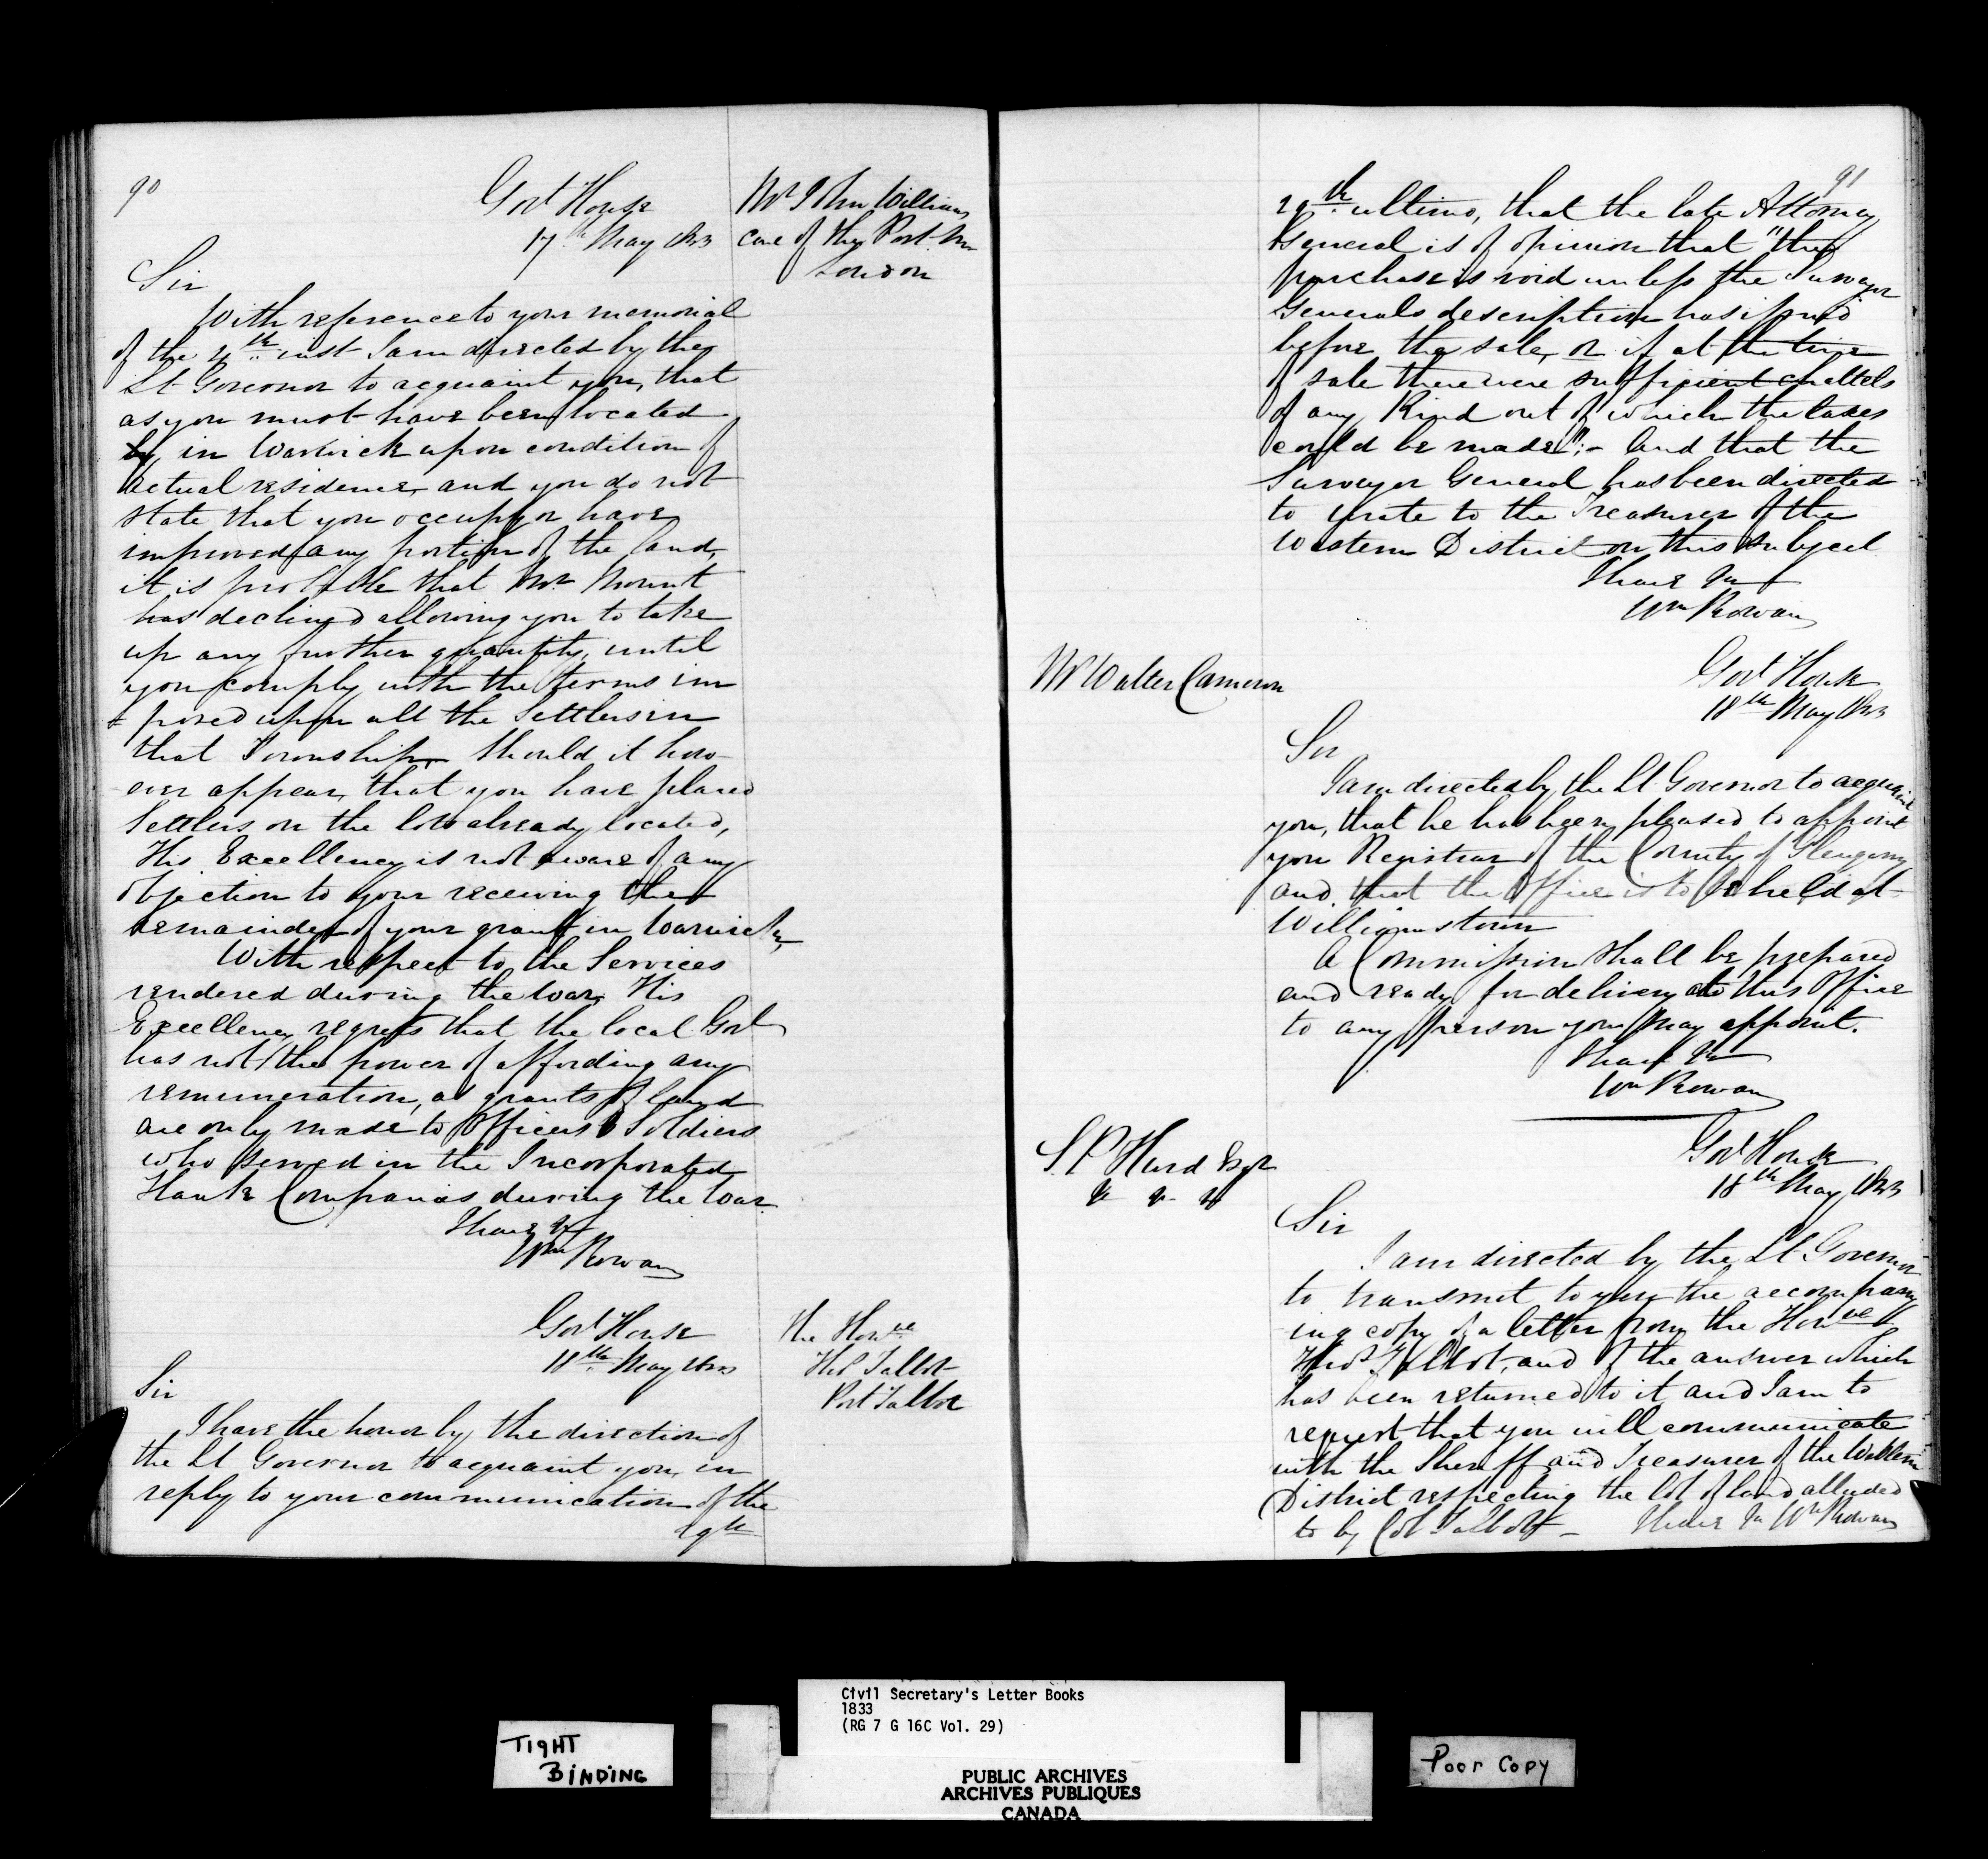 90
Govt House
17th May 1833
Mr John Williams
care of the Post Mr
London
Sir
With reference to your memorial
of the 4th inst I am directed by the
Lt Governor to acquaint you, that
as you must have been located
by, in Warwick upon condition of
actual residence, and you do not
state that you occupy or have
improved any portion of the land,
it is probable that Mr Mount
has declined allowing you to take
up any further quantity, until
you comply with the terms im
= posed upon all the Settlers in
that Township. Should it how-
ever appear, that you have placed
Settlers on the lots already located,
His Excellency is not aware of any
objection to your receiving the
remainder of your grant in Warwick,
With respect to the Services
rendered during the War, His
Excellency regrets that the local Govt
has not the power of affording any
remuneration, as grants of land
are only made to Officers & Soldiers
who served in the Incorporated
Flank Companies during the War.
I have &c
Wm Rowan
Govt House
18th May 1833
The Honble
Thos Talbot
Port Talbot
Sir
I have the honor by the direction of
the Lt Governor to acquaint you, in
reply to your communication of the
29th
91
29th ultimo, that the late Attorney
General is of opinion that "the
purchase is void unless the Surveyor
Generals description has issued
before the sale, or if at the time
of sale there were sufficient chattels
of any Kind out of which the taxes
could be made":- And that the
Surveyor General has been directed
to write to the Treasurer of the
Western District on this subject
I have &c
Wm Rowan
Mr Walter Cameron
Govt House
18th May 1833
Sir
I am directed by the Lt Governor to acquaint
you, that he has been pleased to appoint
you Registrar of the County of Glengarry
and that the Office is to be held at
Williamstown
A Commission shall be prepared
and ready for delivery at this Office
to any person you may appoint.
I have &c
Wm Rowan
S. P. Hurd Esqr
& & &
Govt House
18th May 1833
Sir
I am directed by the Lt Governor
to transmit to you the accompany
ing copy of a letter from the Honble
Thos Talbot, and of the answer which
has been returned to it and I am to
request that you will communicate
with the Sheriff and Treasurer of the Western
District respecting the lot of land alluded
to by Col Talbot - I have &c Wm Rowan
Civil Secretary's Letter Books
1833
(RG 7 G 16C Vol. 29)
TIGHT
BINDING
PUBLIC ARCHIVES
ARCHIVES PUBLIQUES
CANADA
Poor Copy